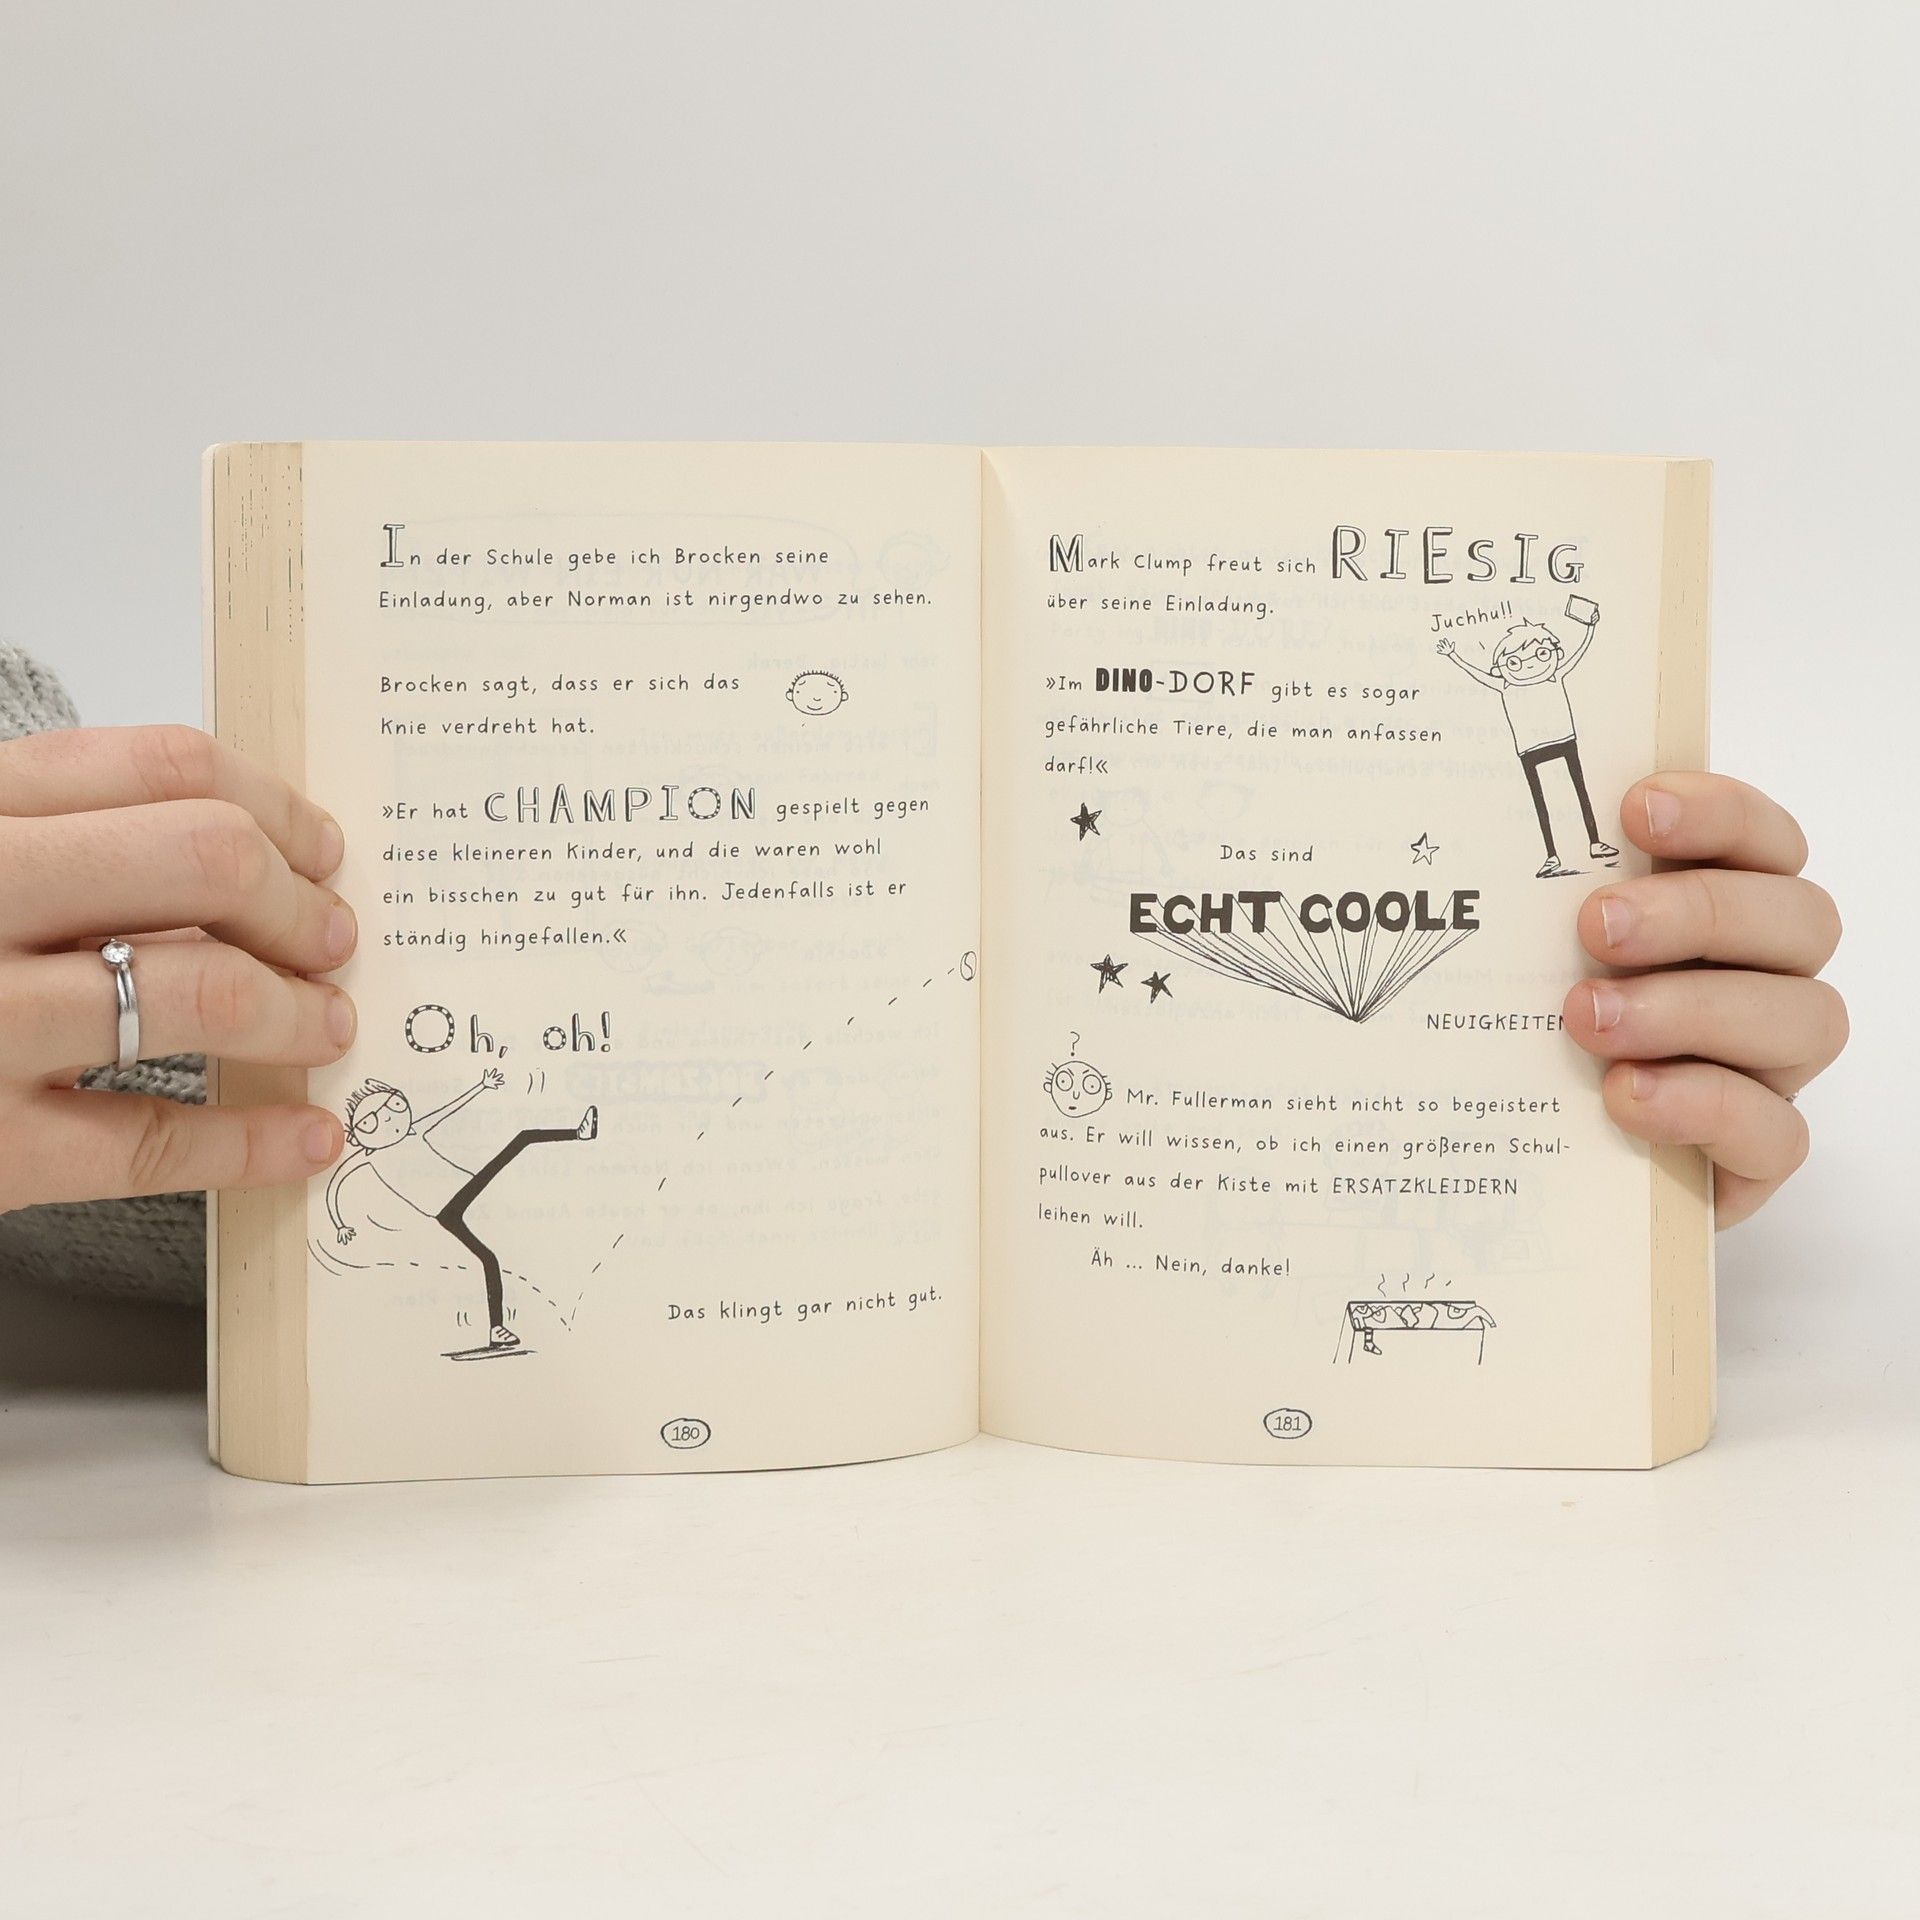 In der Schule gebe ich Brocken seine
Einladung, aber Norman ist nirgendwo zu sehen.
Brocken sagt, dass er sich das
Knie verdreht hat.
»Er hat CHAMPION gespielt gegen
diese kleineren Kinder, und die waren wohl
ein bisschen zu gut für ihn. Jedenfalls ist er
ständig hingefallen.«
Oh, oh!
Das klingt gar nicht gut.
180
Mark Clump freut sich RIESIG
über seine Einladung.
Juchhu!!
»Im DINO-DORF gibt es sogar
gefährliche Tiere, die man anfassen
darf!«
Das sind
ECHT COOLE
NEUIGKEITEN
?
Mr. Fullerman sieht nicht so begeistert
aus. Er will wissen, ob ich einen größeren Schul-
pullover aus der Kiste mit ERSATZKLEIDERN
leihen will.
Äh ... Nein, danke!
181